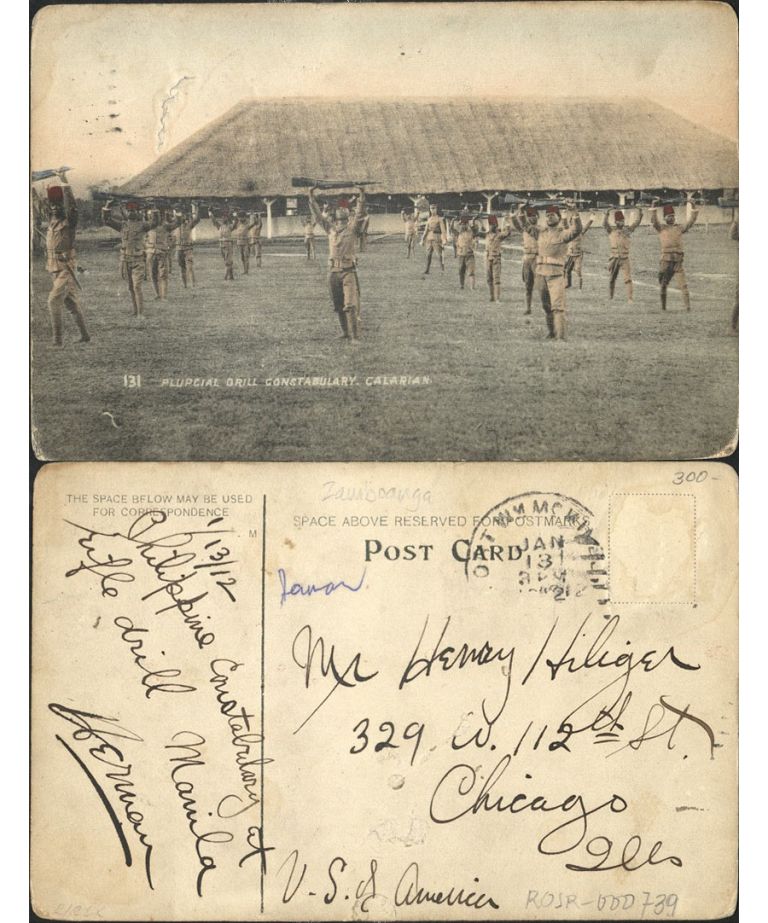 131 PLUPCIAL DRILL CONSTABULARY. CALARIAN.
300-
Zamboanga
THE SPACE BELOW MAY BE USED
FOR CORRESPONDENCE
M
SPACE ABOVE RESERVED FOR POSTMARK
POST CARD
WM MCKIN
JAN
13
1/13/12
Philippine Constabulary at
rifle drill Manila
Herman
Mr Henry Hiliger
329 W. 112th St.
Chicago
Ills
U.S. of America
ROSR-000739